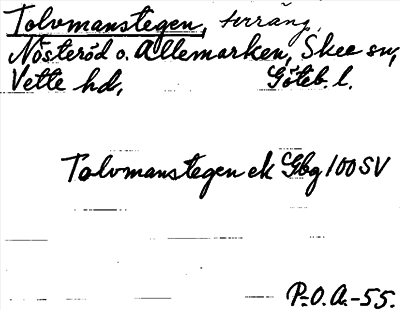 Tolvmanstegen, terräng,
Nösteröd o. Allemarken, Skee sn,
Vette hd, Göteb. l.
Tolvmanstegen ek Gbg 100 SV
P.O.A.-55.